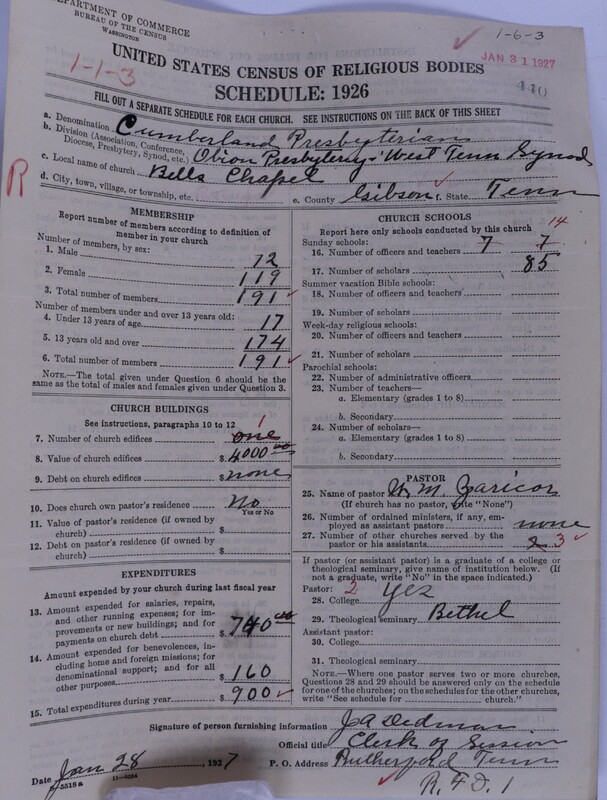 DEPARTMENT OF COMMERCE
BUREAU OF THE CENSUS
WASHINGTON
1-6-3
JAN 31 1927
1-1-3
440
UNITED STATES CENSUS OF RELIGIOUS BODIES
SCHEDULE: 1926
FILL OUT A SEPARATE SCHEDULE FOR EACH CHURCH. SEE INSTRUCTIONS ON THE BACK OF THIS SHEET
a. Denomination Cumberland Presbyterian
b. Division (Association, Conference, Diocese, Presbytery, Synod, etc.) Obion Presbytery - West Tenn Synod
c. Local name of church Bells Chapel
R
d. City, town, village, or township, etc.
e. County Gibson f. State Tenn
MEMBERSHIP
Report number of members according to definition of
member in your church
Number of members, by sex:
1. Male 72
2. Female 119
3. Total number of members 191
Number of members under and over 13 years old:
4. Under 13 years of age 17
5. 13 years old and over 174
6. Total number of members 191
NOTE.—The total given under Question 6 should be
the same as the total of males and females given under Question 3.
CHURCH BUILDINGS
See instructions, paragraphs 10 to 12
7. Number of church edifices one 1
8. Value of church edifices $ 4000 00
9. Debt on church edifices $ none
10. Does church own pastor's residence No
Yes or No
11. Value of pastor's residence (if owned by
church) $
12. Debt on pastor's residence (if owned by
church) $
EXPENDITURES
Amount expended by your church during last fiscal year
13. Amount expended for salaries, repairs,
and other running expenses; for im-
provements or new buildings; and for
payments on church debt $ 740 00
14. Amount expended for benevolences, in-
cluding home and foreign missions; for
denominational support; and for all
other purposes $ 160
15. Total expenditures during year $ 900
CHURCH SCHOOLS
Report here only schools conducted by this church
Sunday schools:
14
16. Number of officers and teachers 7 7
17. Number of scholars 85
Summer vacation Bible schools:
18. Number of officers and teachers
19. Number of scholars
Week-day religious schools:
20. Number of officers and teachers
21. Number of scholars
Parochial schools:
22. Number of administrative officers
23. Number of teachers—
a. Elementary (grades 1 to 8)
b. Secondary
24. Number of scholars—
a. Elementary (grades 1 to 8)
b. Secondary
PASTOR
25. Name of pastor W. M. Zaricor
(If church has no pastor, write "None")
26. Number of ordained ministers, if any, em-
ployed as assistant pastors none
27. Number of other churches served by the
pastor or his assistants 3
If pastor (or assistant pastor) is a graduate of a college or
theological seminary, give name of institution below. (If
not a graduate, write "No" in the space indicated.)
Pastor: 2
28. College Yez
29. Theological seminary Bethel
Assistant pastor:
30. College
31. Theological seminary
NOTE.—Where one pastor serves two or more churches,
Questions 28 and 29 should be answered only on the schedule
for one of the churches; on the schedules for the other churches,
write "See schedule for church."
Signature of person furnishing information J A Dedman
Official title Clerk of Session
Date Jan 28, 1927 P. O. Address Rutherford Tenn
R.F.D. 1